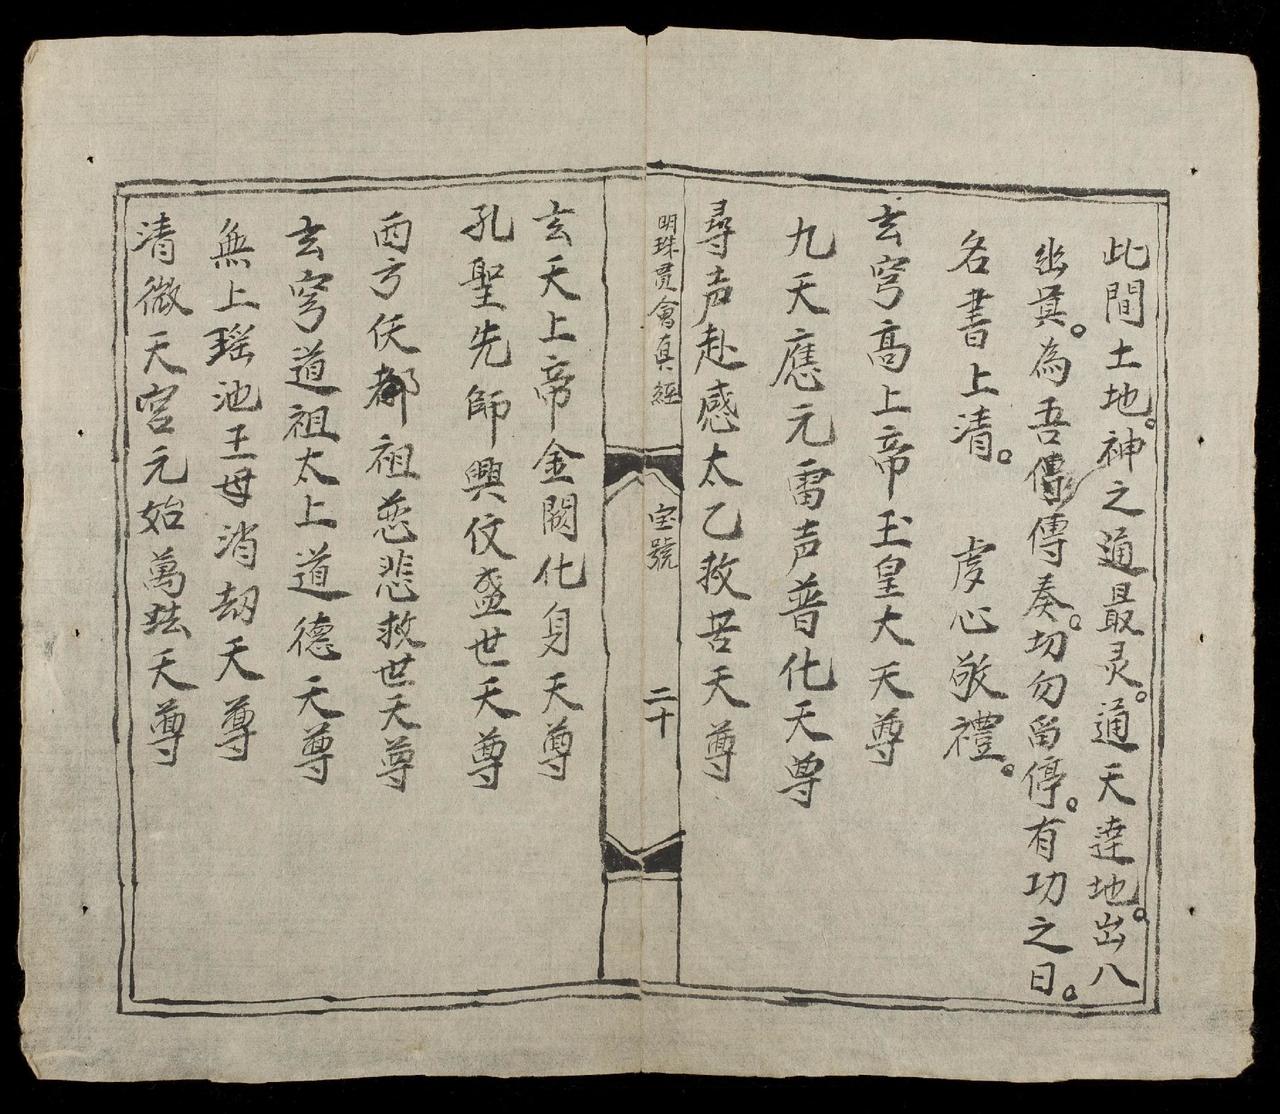 此間土地。神之通最灵。通天達地。出八
幽冥。為吾傳傳奏。切勿留停。有功之日。
名書上清。 虔心敬禮。
玄穹高上帝玉皇大天尊
九天應元雷声普化天尊
尋声赴感太乙救苦天尊
明珠貫會真經
宝號
二十
玄天上帝金闕化身天尊
孔聖先師興仗盛世天尊
西方仸都祖慈悲救世天尊
玄穹道祖太上道德天尊
無上瑶池王母消劫天尊
清微天宮元始萬珐天尊